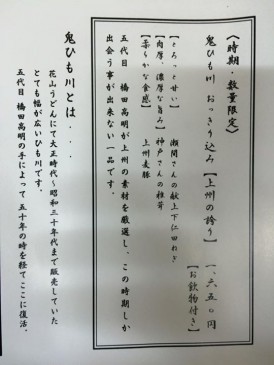 〈時期・数量限定〉
鬼ひも川 おっきり込み【上州の誇り】 一、六五〇円
【お飲物付き】
【とろっと甘い】 瀬間さんの献上下仁田ねぎ
【肉厚、濃厚な旨み】 神戸さんの椎茸
【柔らかな食感】 上州麦豚
五代目 橋田高明が上州の素材を厳選し、この時期しか
出会う事が出来ない一品です。
鬼ひも川とは・・・・
花山うどんにて大正時代〜昭和三十年代まで販売していた
とても幅が広いひも川です。
五代目 橋田高明の手によって 五十年の時を経てここに復活。